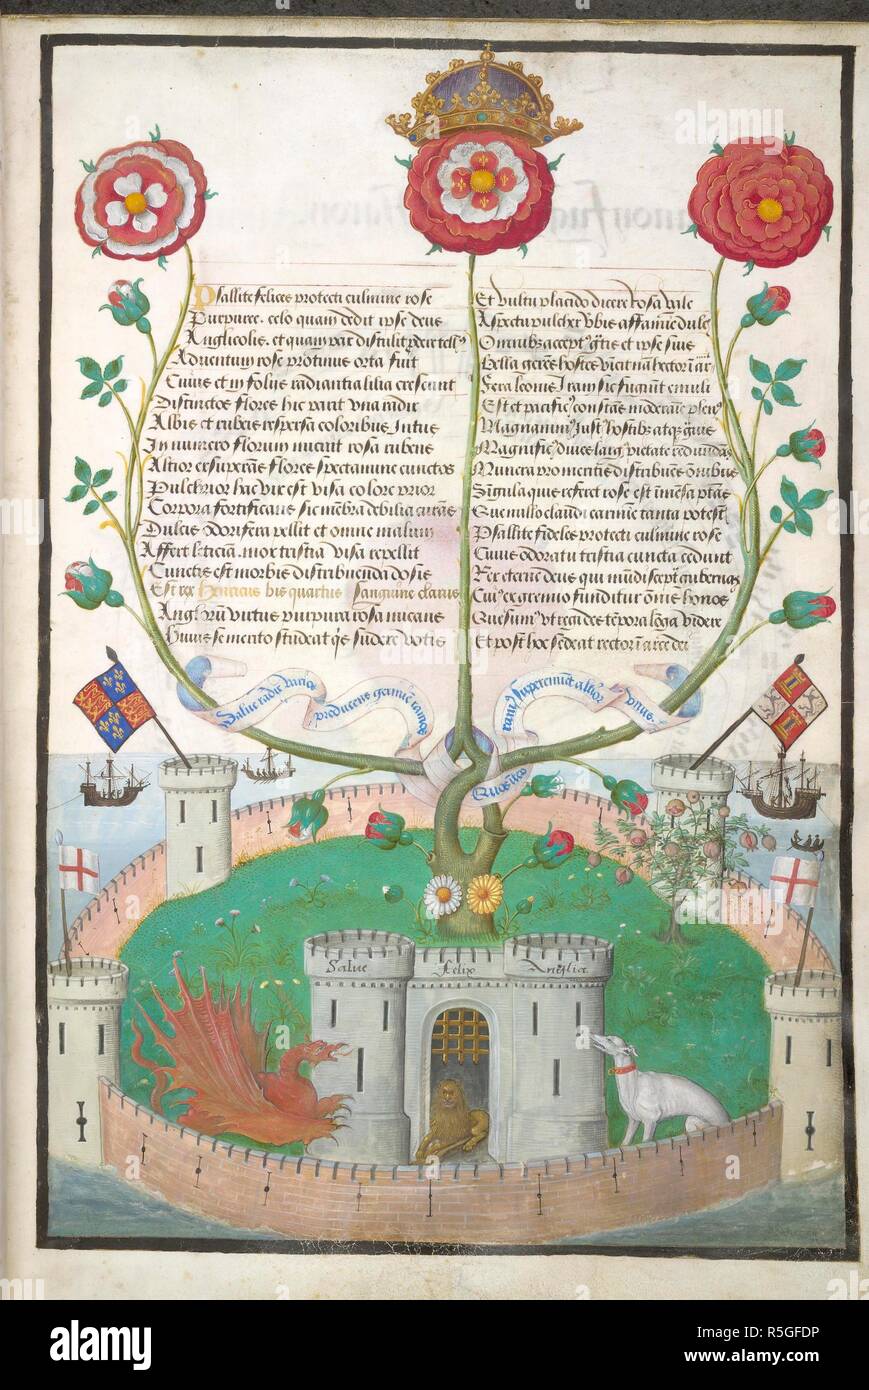 Psallite felices protecti culmine rose
Purpuree. celo quam dedit ipse deus
Anglicolis. et quam pax distulit
Adventum rose protinus orta fuit
Cuius et in folijs radiantia lilia crescunt
Distinctos flores hic parit una radix
Albis et rubeis respersa coloribus intus
In numero florum nitent rosa rubens
Altior exsuperans flores spectamine cunctos
Pulchrior hac vix est visa colore prior
Corpora fortificans sic membra debilia curans
Dulcis odorifera pellit et omne malum
Affert leticiam. mox tristia visa repellit
Cunctis est morbis distribuenda dosis
Est rex Henricus bis quartus Sanguine clarus
Anglorum virtus purpura rosa micans
Huius memento studeat fundere votis
Et vultu placido dicere rosa vale
Aspectu pulcher verbis affamine dulcis
Omnibus acceptus et ipse suis
Bella gerens hostes vincit
Fera leonis iram sic fugiunt emuli
Est et pacificus constans
Magnanimus Justus hostibus atque
Magnificus dives largus pietate redundans
Munera pro meritis distribuens omnibus
Singula que referet rose est
Que nullo claudi carmine tanta potest
Psallite fideles protecti culmine rose
Cuius odoratu tristia cuncta cedunt
Rex eterne deus qui mundi sceptra gubernas
Cuius ex gremio funditur omnis honos
Quesumus ut regi des tempora longa videre
Et post hoc sedeat rector in arce dei
Salve radix varios producens germine ramos
Quos inter ramus supereminet altior unus
Salve felix Anglia
alamy
a
alamy
Image ID: R5GFDP
www.alamy.com